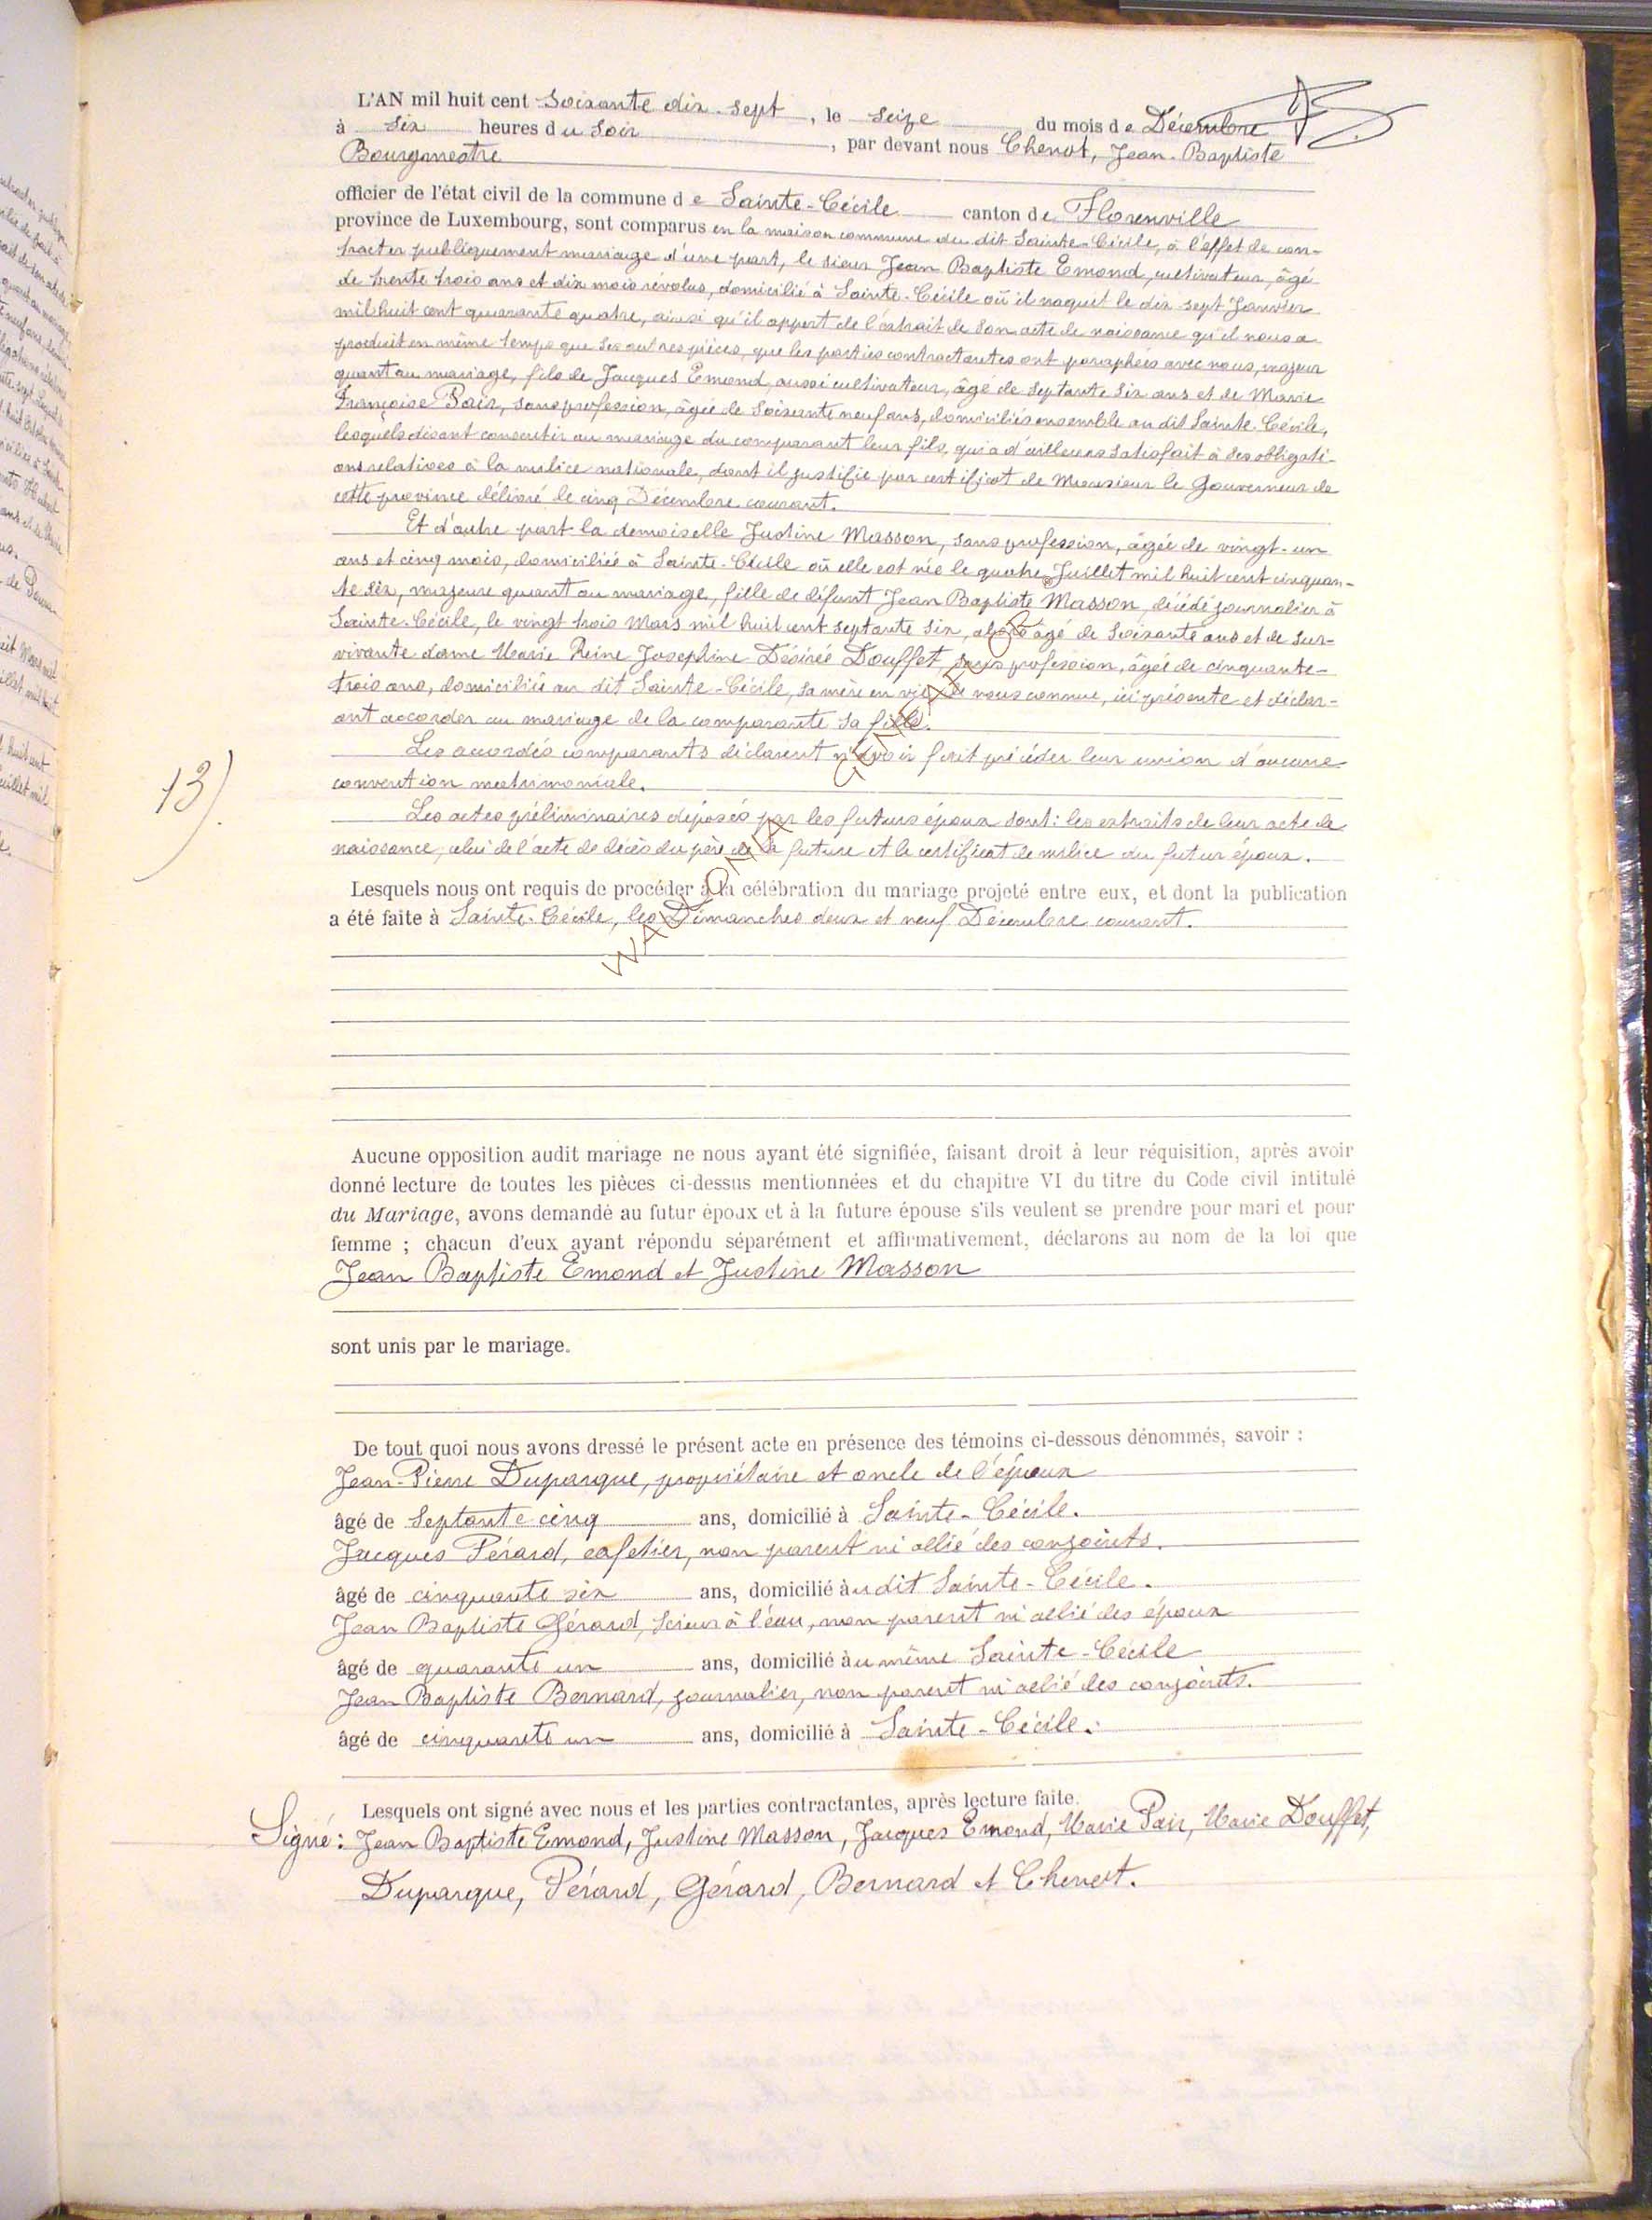 L'AN mil huit cent Soixante dix-sept, le seize du mois de Décembre
à six heures du soir, par devant nous Chenot, Jean-Baptiste
Bourgmestre
officier de l'état civil de la commune de Sainte-Cécile canton de Florenville
province de Luxembourg, sont comparus en la maison commune du dit Sainte-Cécile, à l'effet de con-
tracter publiquement mariage d'une part, le sieur Jean Baptiste Emond, cultivateur, âgé
de trente trois ans et dix mois révolus, domicilié à Sainte-Cécile où il naquit le dix-sept Janvier
mil huit cent quarante quatre, ainsi qu'il appert de l'extrait de son acte de naissance qu'il nous a
produit en même temps que ses autres pièces, que les parties contractantes ont paraphées avec nous, majeur
quant au mariage, fils de Jacques Emond, aussi cultivateur, âgé de septante six ans et de Marie
Françoise Pair, sans profession, âgée de soixante neuf ans, domiciliés ensemble au dit Sainte-Cécile,
lesquels disant consentir au mariage du comparant leur fils, qui a d'ailleurs satisfait à ses obligati-
ons relatives à la milice nationale, dont il justifie par certificat de Monsieur le Gouverneur de
cette province délivré le cinq Décembre courant.
Et d'autre part la demoiselle Justine Masson, sans profession, âgée de vingt-un
ans et cinq mois, domiciliée à Sainte-Cécile où elle est née le quatre Juillet mil huit cent cinquan-
te six, majeure quant au mariage, fille de défunt Jean Baptiste Masson, décédé journalier à
Sainte-Cécile, le vingt trois Mars mil huit cent septante six, alors âgé de soixante ans et de sur-
vivante dame Marie Reine Josephine Désirée Douffet, sans profession, âgée de cinquante-
trois ans, domiciliée au dit Sainte-Cécile, sa mère en vie de nous connue, ici présente et déclar-
ant accorder au mariage de la comparante sa fille.
Les accordés comparants déclarent n'avoir fait précéder leur union d'aucune
convention matrimoniale.
13).
Les actes préliminaires déposés par les futurs époux sont: les extraits de leur acte de
naissance, celui de l'acte de décès du père de la future et le certificat de milice du futur époux.
Lesquels nous ont requis de procéder à la célébration du mariage projeté entre eux, et dont la publication
a été faite à Sainte-Cécile, les Dimanches deux et neuf Décembre courant.
Aucune opposition audit mariage ne nous ayant été signifiée, faisant droit à leur réquisition, après avoir
donné lecture de toutes les pièces ci-dessus mentionnées et du chapitre VI du titre du Code civil intitulé
du Mariage, avons demandé au futur époux et à la future épouse s'ils veulent se prendre pour mari et pour
femme ; chacun d'eux ayant répondu séparément et affirmativement, déclarons au nom de la loi que
Jean Baptiste Emond et Justine Masson
sont unis par le mariage.
De tout quoi nous avons dressé le présent acte en présence des témoins ci-dessous dénommés, savoir :
Jean-Pierre Duparque, propriétaire et oncle de l'époux
âgé de septante cinq ans, domicilié à Sainte-Cécile.
Jacques Pérard, cafetier, non parent ni allié des conjoints.
âgé de cinquante six ans, domicilié au dit Sainte-Cécile.
Jean Baptiste Gérard, scieur à l'eau, non parent ni allié des époux
âgé de quarante un ans, domicilié au même Sainte-Cécile
Jean Baptiste Bernard, journalier, non parent ni allié des conjoints.
âgé de cinquante un ans, domicilié à Sainte-Cécile.
Lesquels ont signé avec nous et les parties contractantes, après lecture faite.
Signé: Jean Baptiste Emond, Justine Masson, Jacques Emond, Marie Pair, Marie Douffet,
Duparque, Pérard, Gérard, Bernard et Chenot.